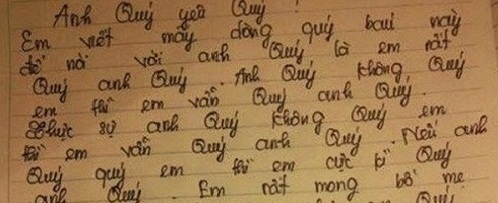 Anh Quý yêu Quý !
Em viết mấy dòng quý baui này
để nói với anh Quý là em rất
Quý anh Quý. Anh Quý không Quý
em thì em vẫn Quý anh Quý.
Thực sự anh Quý không Quý em
thì em vẫn Quý anh Quý. Nếu anh
Quý quý em thì em cực kì Quý
anh Quý. Em rất mong bố mẹ
Quý